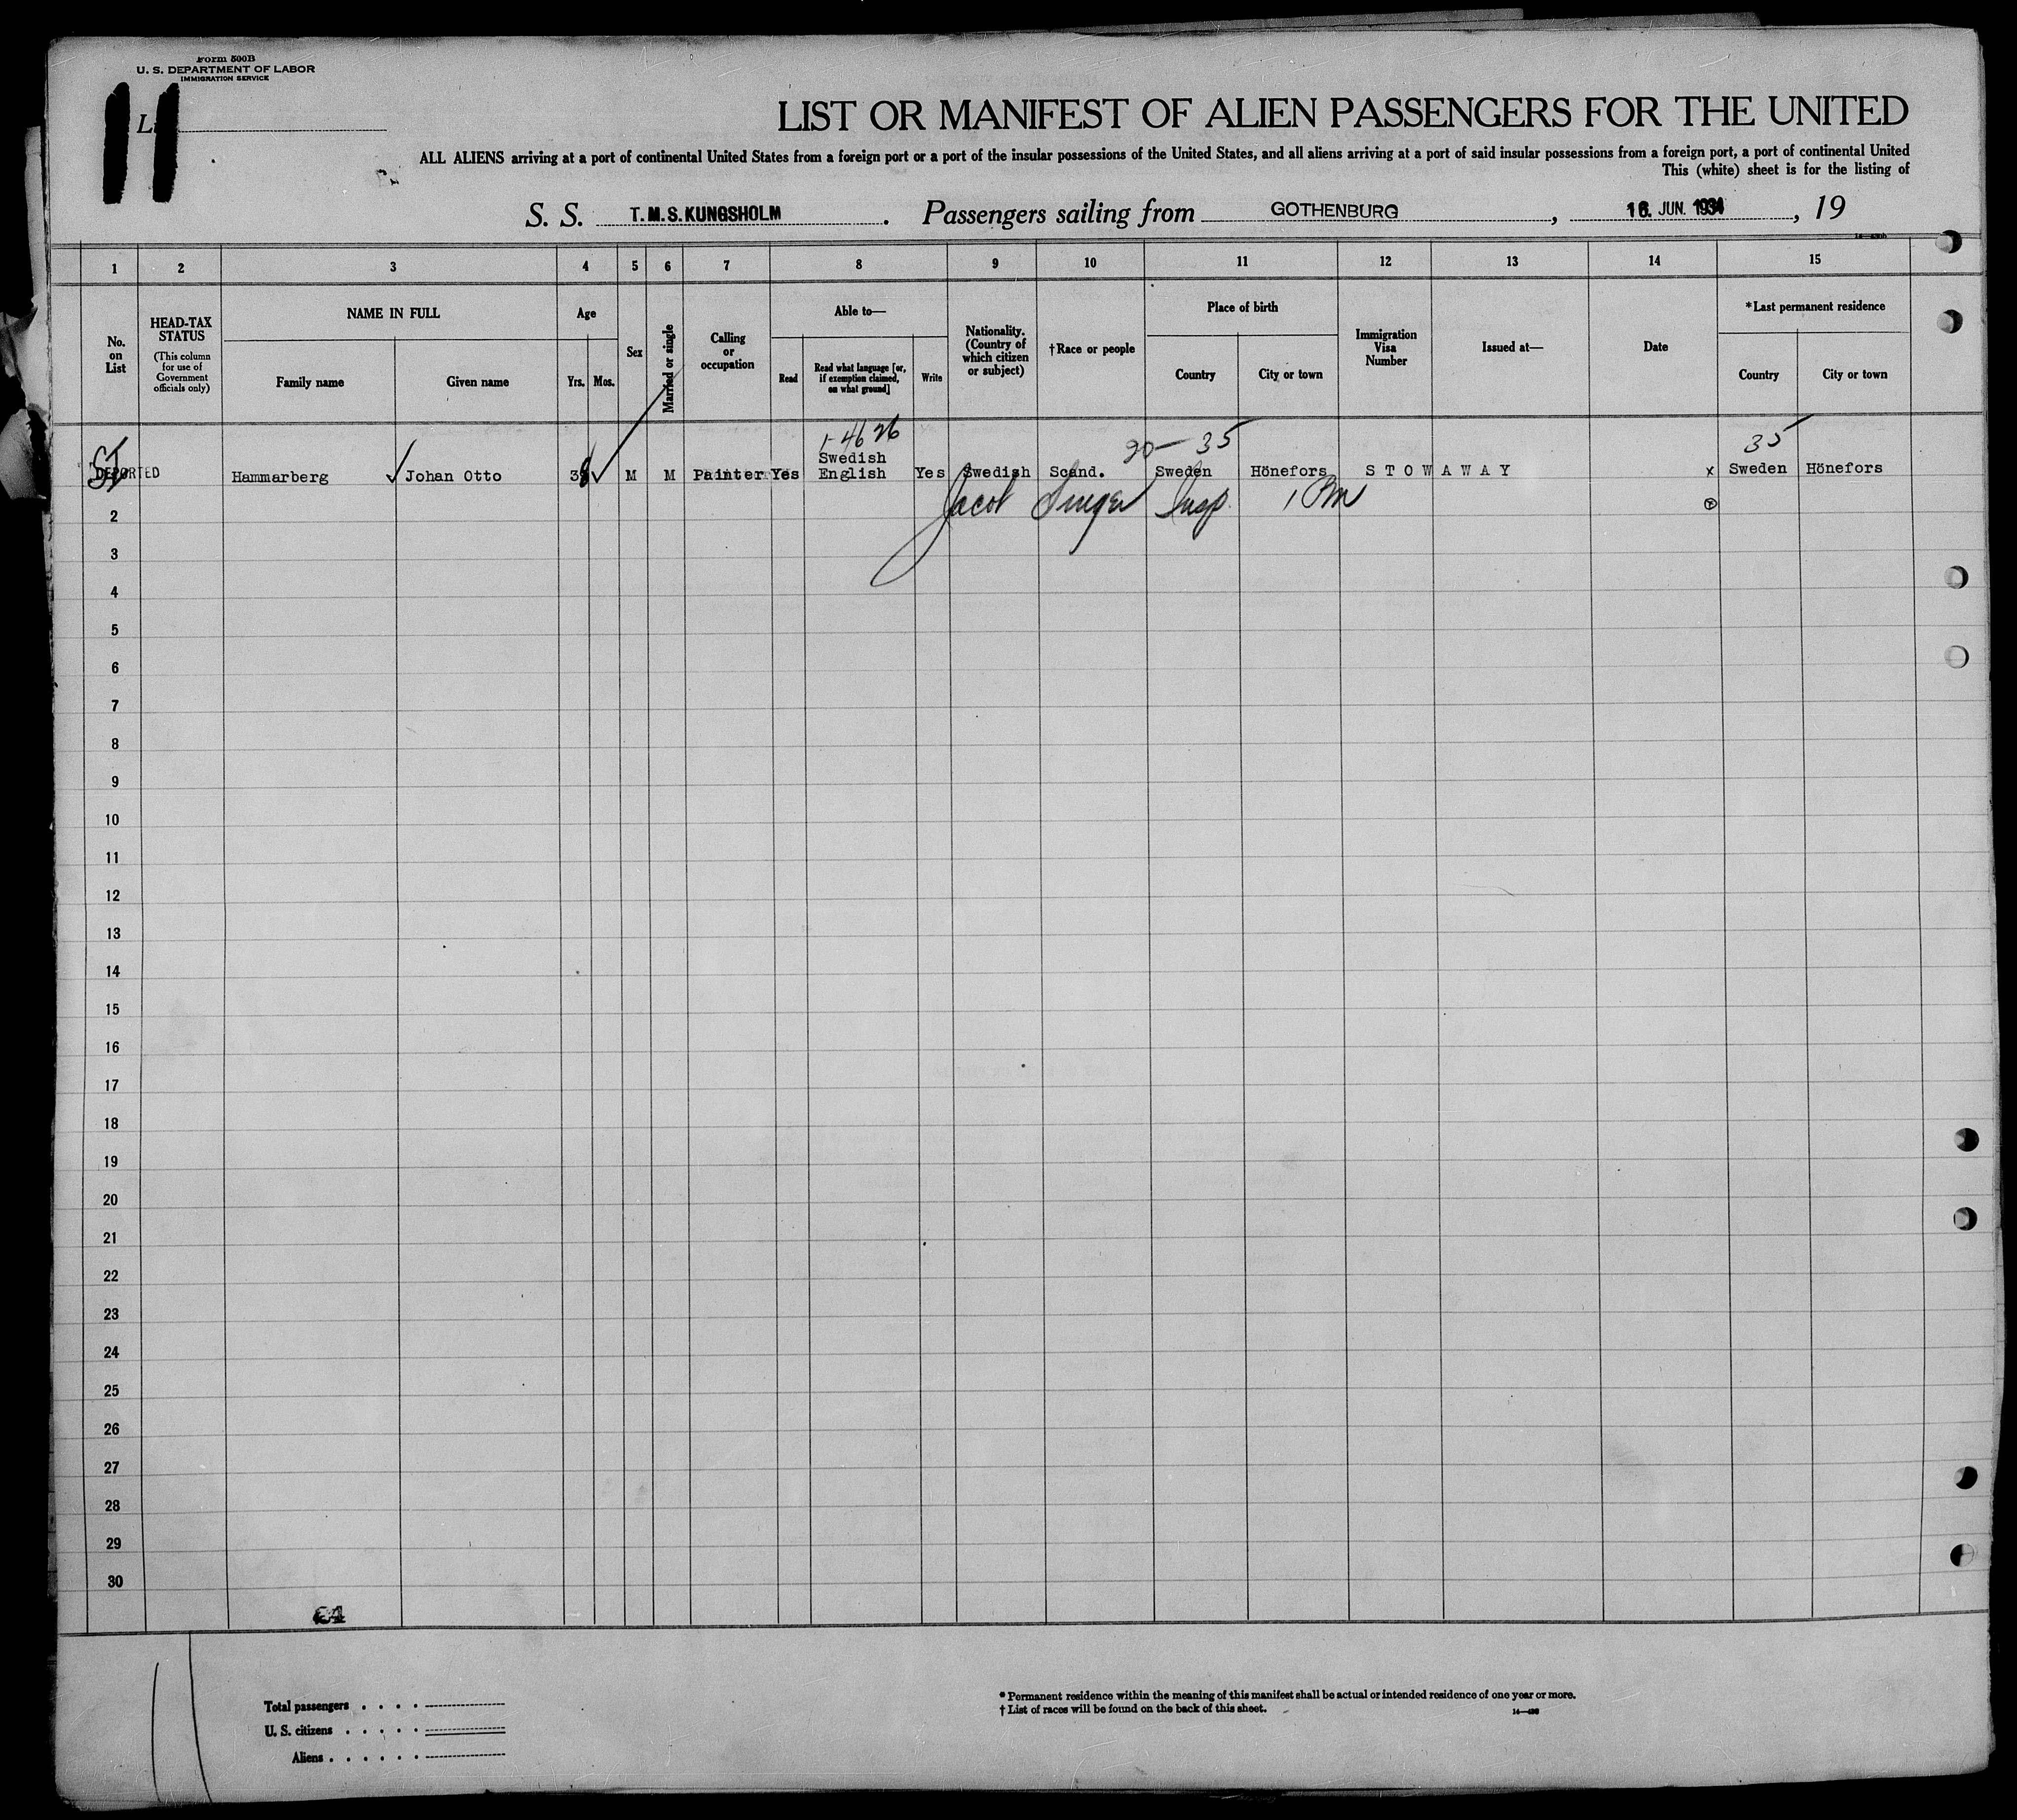 Form 500B
U. S. DEPARTMENT OF LABOR
IMMIGRATION SERVICE
11
LIST OR MANIFEST OF ALIEN PASSENGERS FOR THE UNITED
ALL ALIENS arriving at a port of continental United States from a foreign port or a port of the insular possessions of the United States, and all aliens arriving at a port of said insular possessions from a foreign port, a port of continental United
This (white) sheet is for the listing of
S. S. T.M.S.KUNGSHOLM. Passengers sailing from GOTHENBURG, 16. JUN. 1934, 19
1 2 3 4 5 6 7 8 9 10 11 12 13 14 15
No. on List
HEAD-TAX STATUS
(This column for use of Government officials only)
NAME IN FULL
Family name
Given name
Age
Yrs.
Mos.
Sex
Married or single
Calling or occupation
Able to—
Read
Read what language [or, if exemption claimed, on what ground]
Write
Nationality. (Country of which citizen or subject)
†Race or people
Place of birth
Country
City or town
Immigration Visa Number
Issued at—
Date
*Last permanent residence
Country
City or town
1-46 26
20- 35
35
Swedish
ST DEPORTED Hammarberg Johan Otto 38 M M Painter Yes English Yes Swedish Scand. Sweden Hönefors STOWAWAY x Sweden Hönefors
Jacob Singer Insp.
2
3
4
5
6
7
8
9
10
11
12
13
14
15
16
17
18
19
20
21
22
23
24
25
26
27
28
29
30
Total passengers . . . .
U. S. citizens . . . . .
Aliens . . . . . .
* Permanent residence within the meaning of this manifest shall be actual or intended residence of one year or more.
† List of races will be found on the back of this sheet.